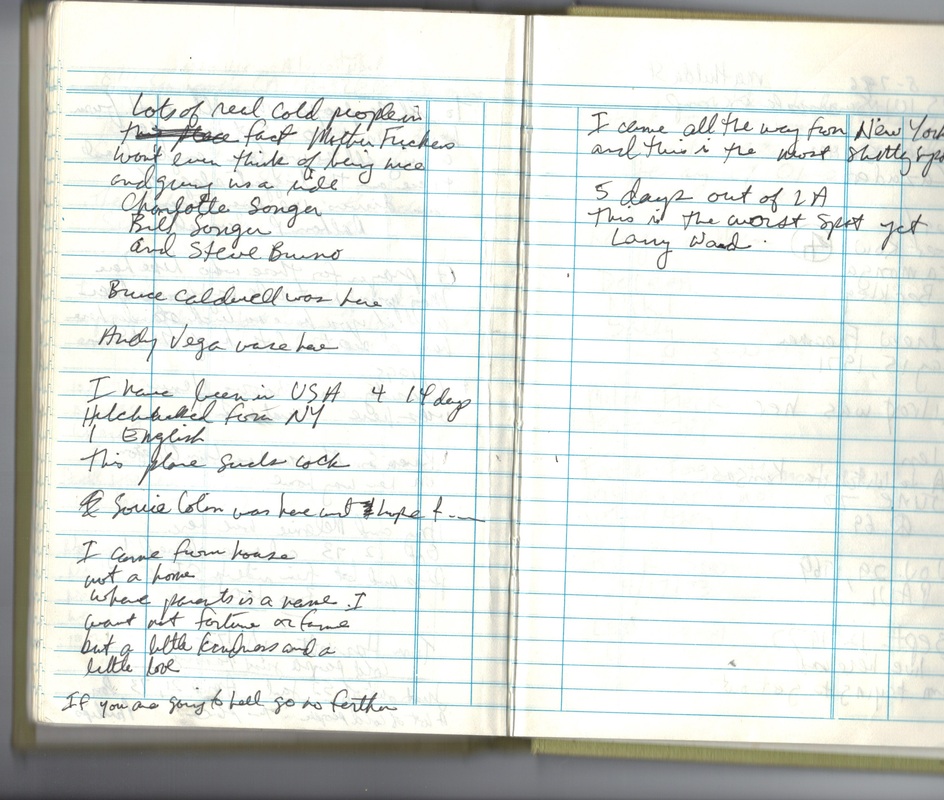 Lots of real cold people in
fact Mother Fuckers
won't even think of being nice
and giving us a ride
Charlotte Songer
Bill Songer
and Steve Bruno
Bruce Caldwell was here
Andy Vega was here
I have been in USA 4 14 days
Hitchhiked from NY
1 English
this place sucks cock
Colon was here and hope
I came from house
not a home
where parents is a name. I
want not fortune or fame
but a little kindness and a
little love
If you are going to hell go no farther
I came all the way from New York
and this is the most shitty
5 days out of LA
This is the worst spot yet
Larry Wood